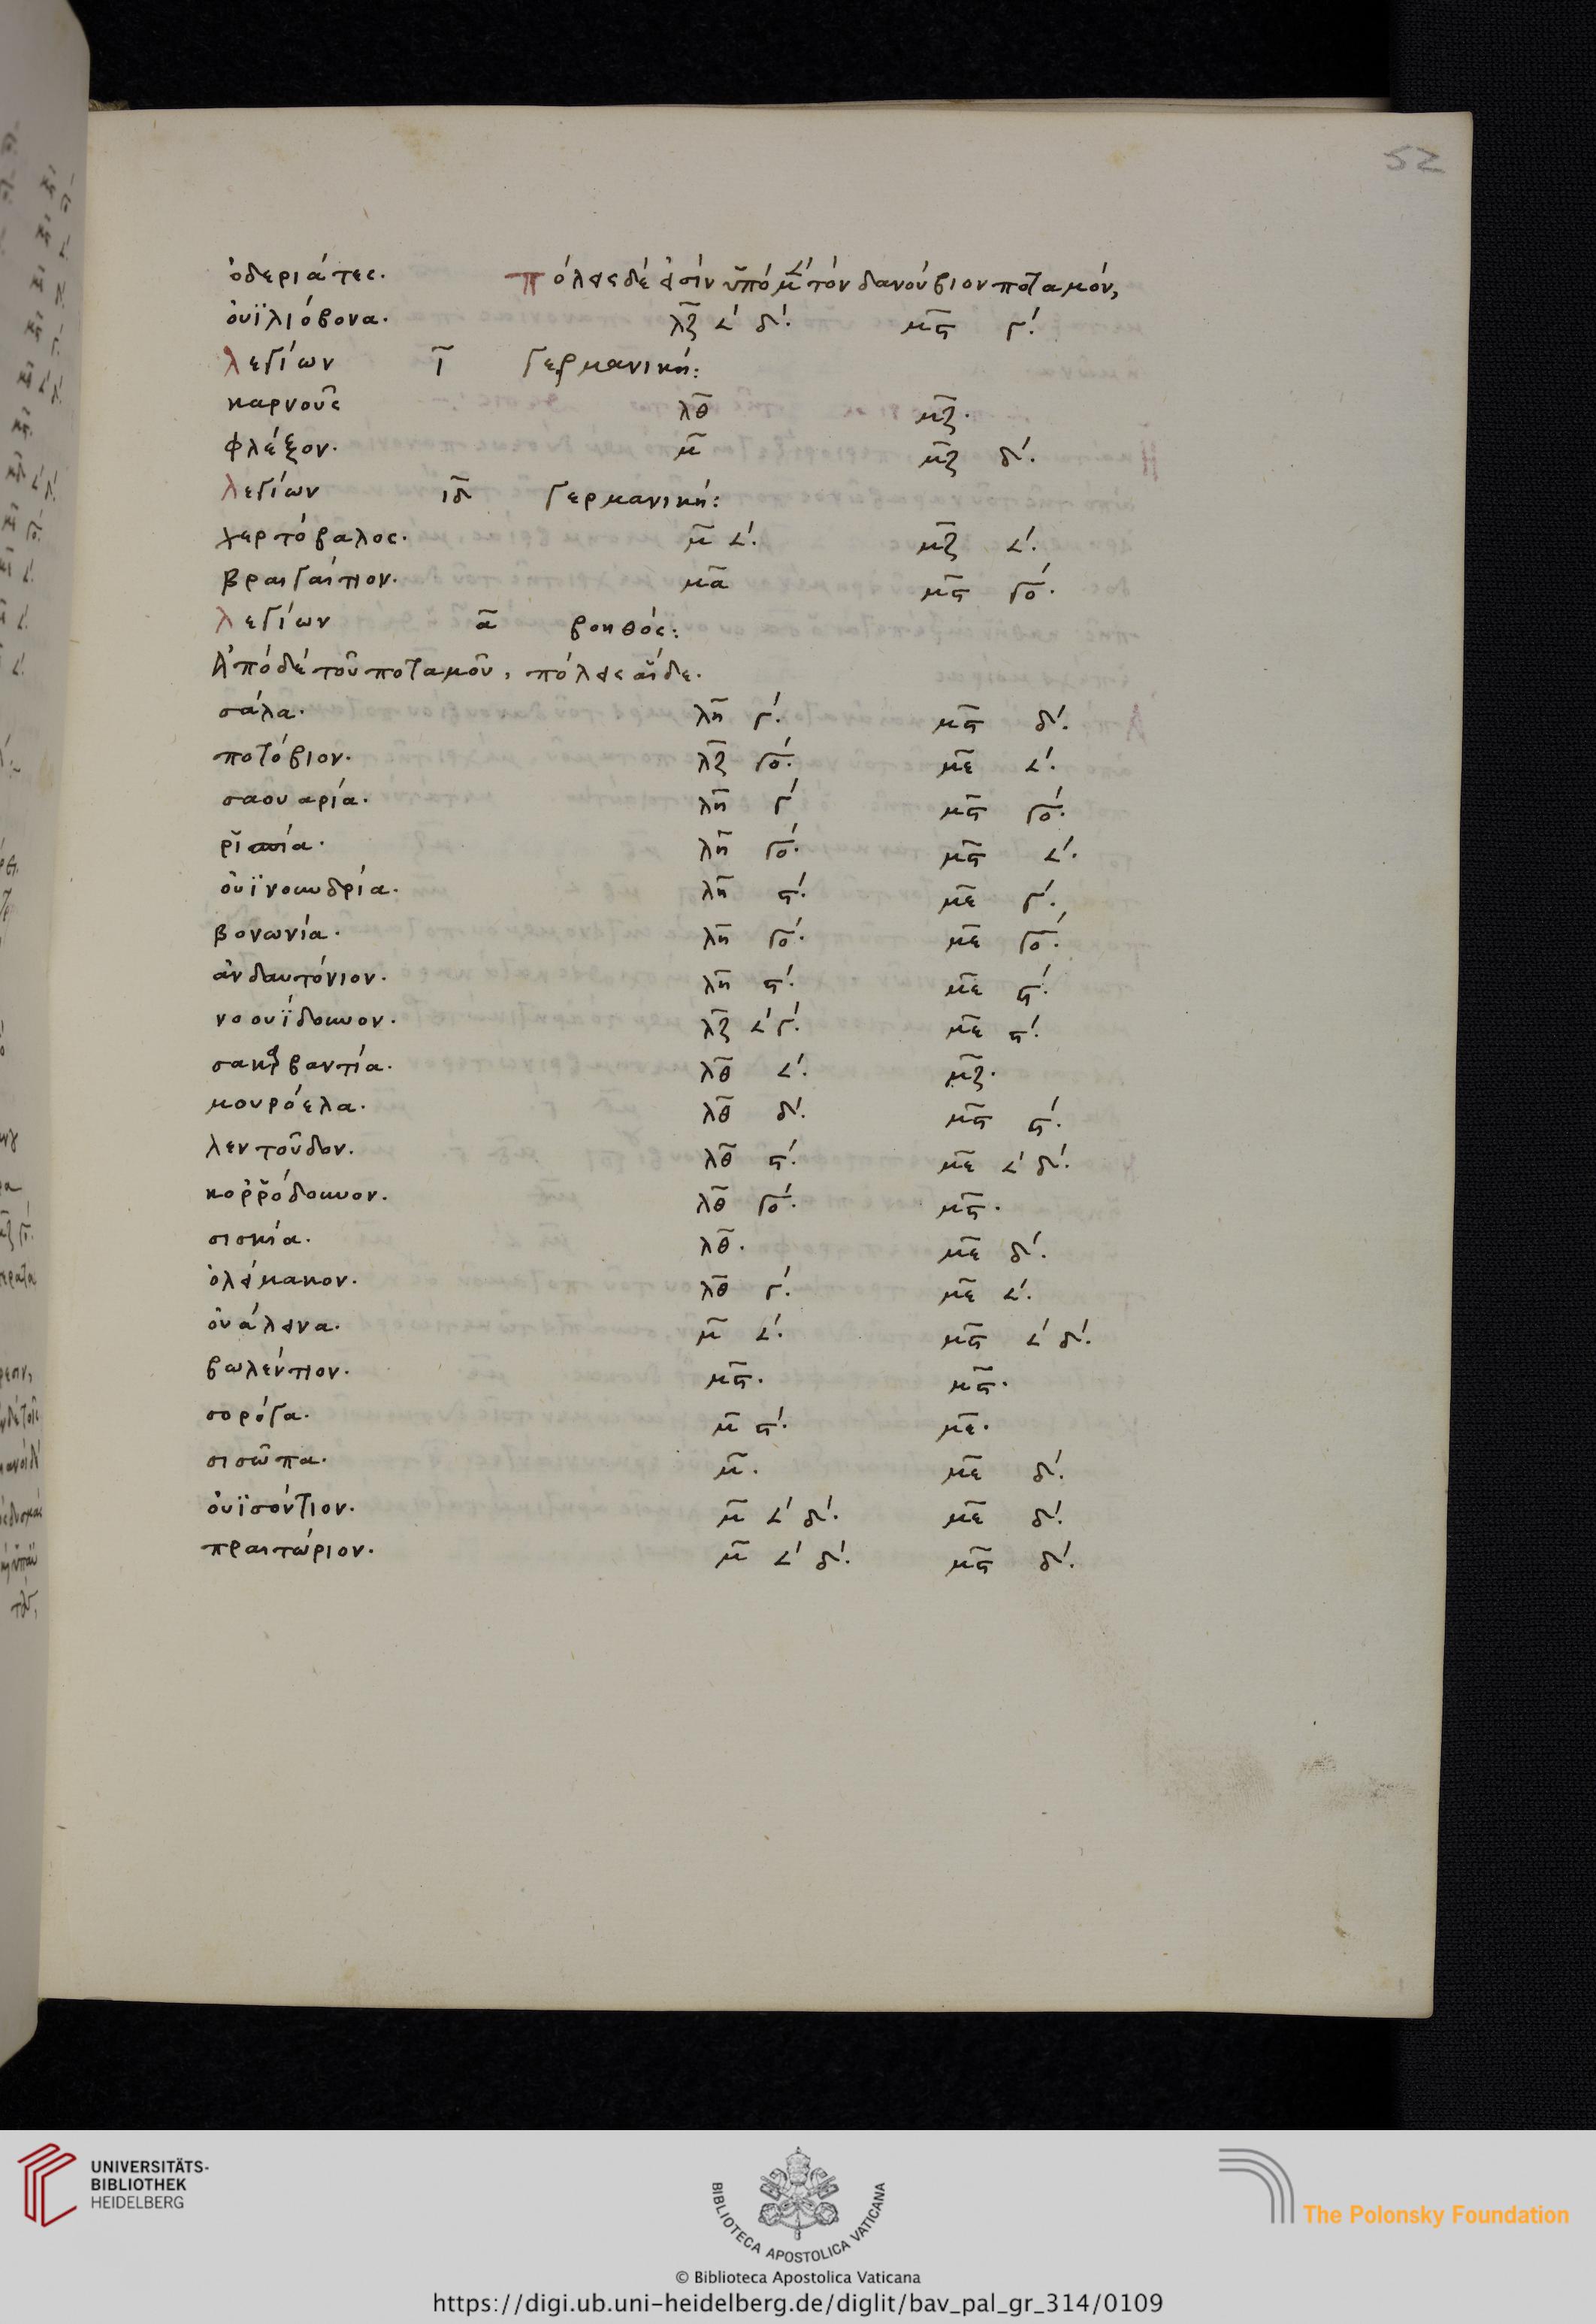 52
ὀδεριάτες. πόλεις δέ εἰσιν ὑπὸ μ̅ ∠ʹ τὸν δανούβιον ποταμόν,
οὐϊλιόβονα. λ̅ζ̅ ∠ʹ δʹ. μ̅ς̅ γʹ.
λεγίων ι̅ γερμανική:
καρνοῦς λ̅θ̅ μ̅ζ̅.
φλέξον. μ̅ μ̅ζ̅ δʹ.
λεγίων ι̅δ̅ γερμανική:
χερτόβαλος. μ̅ ∠ʹ. μ̅ζ̅ ∠ʹ.
βραιγαίτιον. μ̅α̅ μ̅ς̅ γοʹ.
λεγίων α̅ βοηθός:
Ἀπὸ δὲ τοῦ ποταμοῦ, πόλεις αἵδε.
σάλα. λ̅η̅ γʹ. μ̅ς̅ δʹ.
ποτόβιον. λ̅ζ̅ γοʹ. μ̅ε̅ ∠ʹ.
σαουαρία. λ̅η̅ γʹ μ̅ς̅ γοʹ.
λ̅η̅ γοʹ. μ̅ς̅ ∠ʹ.
οὐϊνοκωδρία. λ̅η̅ ςʹ. μ̅ε̅ γʹ.
βονωνία. λ̅η̅ γοʹ. μ̅ε̅ γοʹ.
ἀνδαυτόνιον. λ̅η̅ ςʹ. μ̅ε̅ ςʹ.
νοουΐδουνον. λ̅ζ̅ ∠ʹ γʹ. μ̅ε̅ ςʹ.
σακρβαντία. λ̅θ̅ ∠ʹ. μ̅ζ̅.
μουρόελα. λ̅θ̅ δʹ. μ̅ς̅ ςʹ.
λεντοῦδον. λ̅θ̅ ςʹ. μ̅ε̅ ∠ʹ δʹ.
καρρόδουνον. λ̅θ̅ γοʹ. μ̅ς̅.
σισκία. λ̅θ̅. μ̅ε̅ δʹ.
ὀλίμακον. λ̅θ̅ γʹ. μ̅ε̅ ∠ʹ.
οὐάλινα. μ̅ ∠ʹ. μ̅ς̅ ∠ʹ δʹ.
βωλέντιον. μ̅ς̅. μ̅ς̅.
σορόγα. μ̅ ςʹ. μ̅ε̅.
σισῶπα. μ̅. μ̅ε̅ δʹ.
οὐϊσόντιον. μ̅ ∠ʹ δʹ. μ̅ε̅ δʹ.
πραιτώριον. μ̅ ∠ʹ δʹ. μ̅ς̅ δʹ.
UNIVERSITÄTS-
BIBLIOTHEK
HEIDELBERG
BIBLIOTECA APOSTOLICA VATICANA
The Polonsky Foundation
© Biblioteca Apostolica Vaticana
https://digi.ub.uni-heidelberg.de/diglit/bav_pal_gr_314/0109